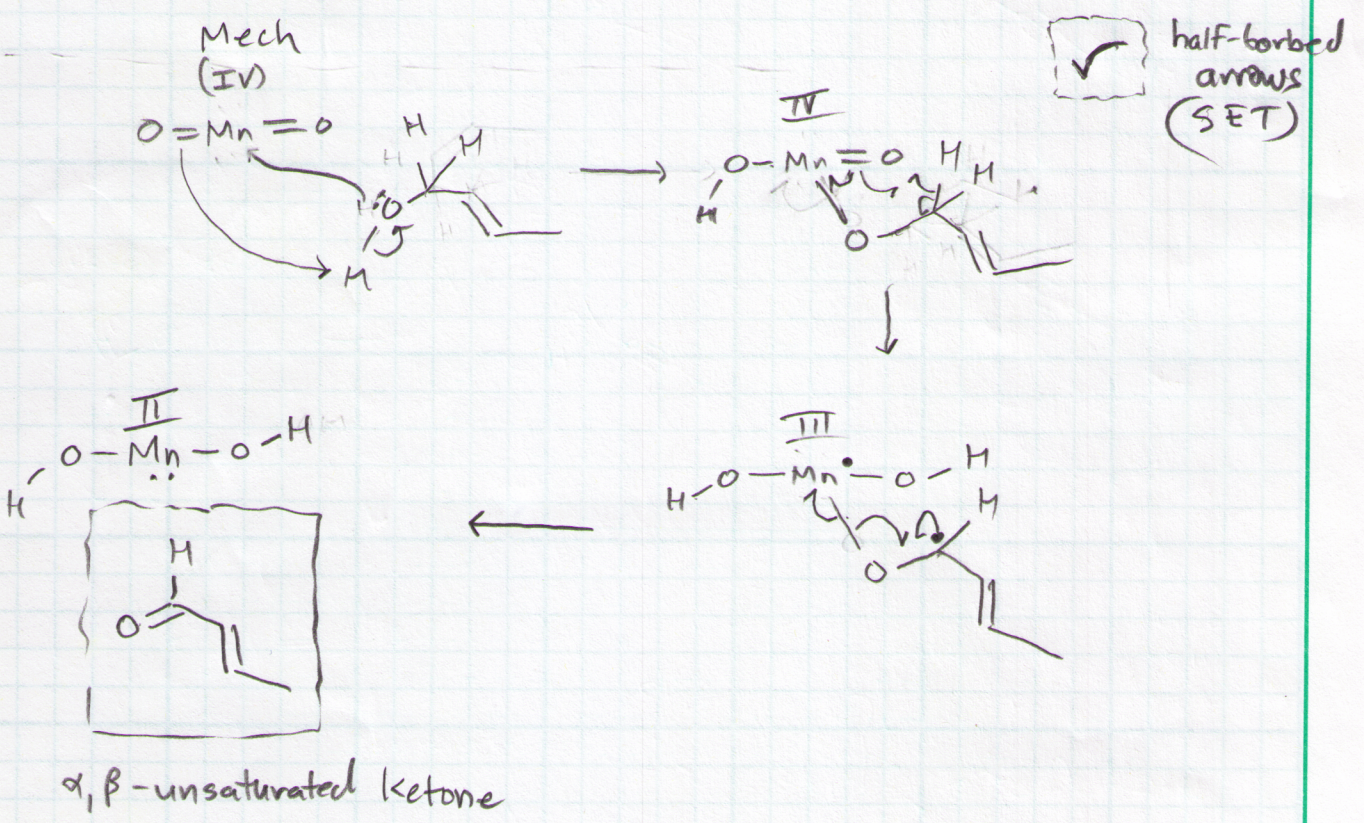 Mech
(IV)
O=Mn=O
H
H
O
H
half-barbed
arrows
(SET)
IV
O-Mn=O
H
H
H
O
III
H-O-Mn•-O-H
H
O
II
H-O-Mn-O-H
H
O
α,β-unsaturated ketone